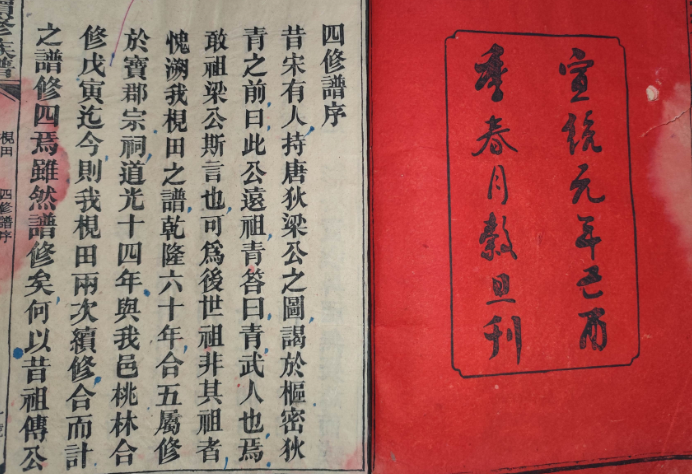 宣統元年己酉
季春月穀旦刊
四修譜序
昔宋有人持唐狄梁公之圖謁於樞密狄
青之前曰此公遠祖青答曰青武人也焉
敢祖梁公斯言也可爲後世祖非其祖者
愧溯我梘田之譜乾隆六十年合五屬修
於寶郡宗祠道光十四年與我邑桃林合
修戊寅迄今則我梘田兩次續修合而計
之譜修四焉雖然譜修矣何以昔祖傳公
修族譜
梘田
四修譜序